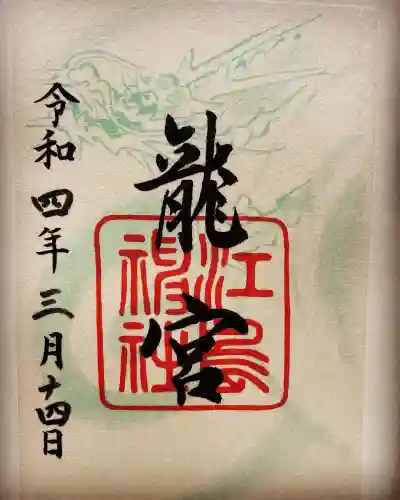 龍宮
江島神社
令和四年三月十四日